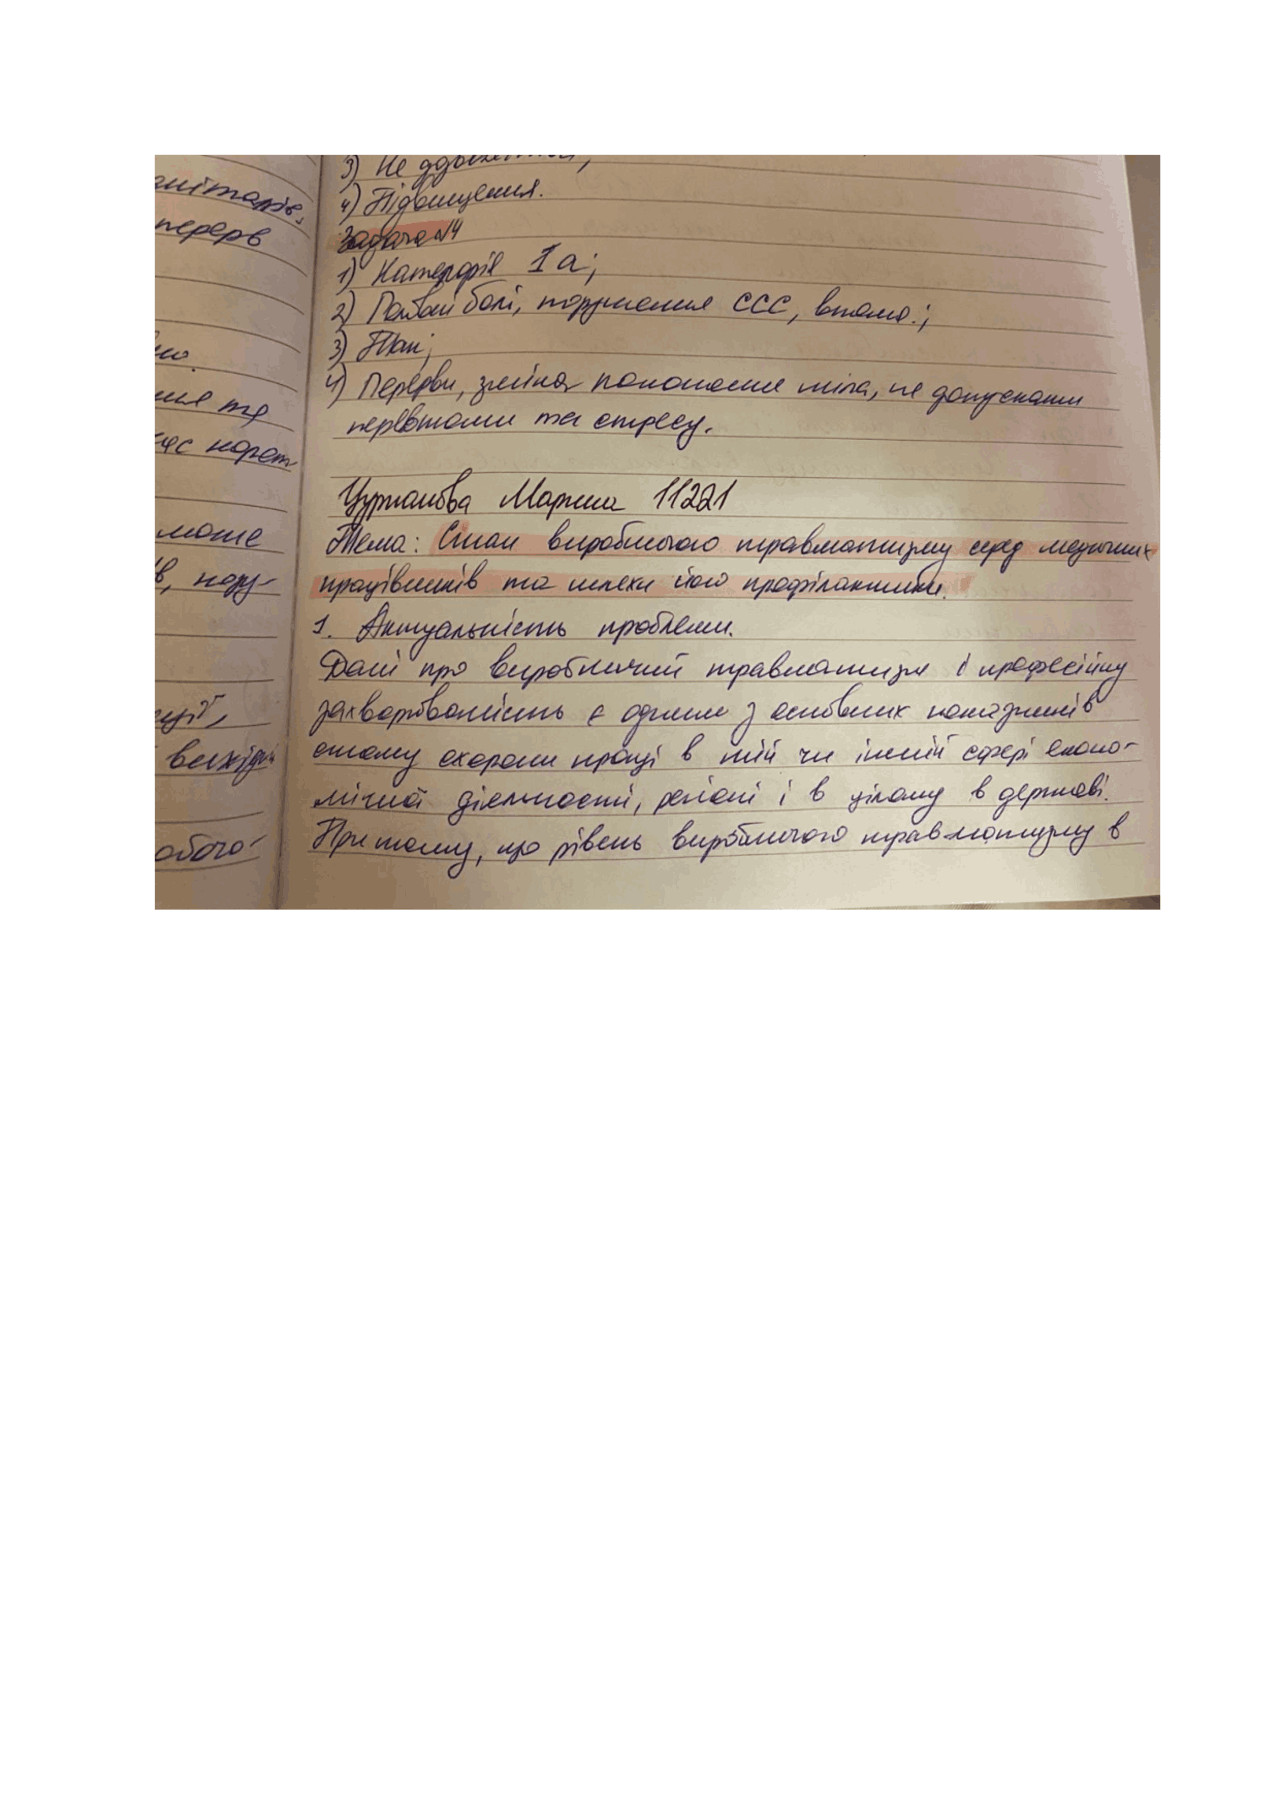 анітарів.
перерв
ня та
час корот-
може
в, пору-
ції,
вихідн
обочо-
3) Не
4) Підвищення.
Задача №4
1) Категорія 1а;
2) Головні болі, порушення ССС, втома.;
3) Так;
4) Перерви, зміна положення тіла, не допускати
перевтоми та стресу.
Марина 11221
Тема: Стан виробничого травматизму серед медичних
працівників та шляхи його профілактики.
1. Актуальність проблеми.
Дані про виробничий травматизм і професійну
захворюваність є одним з основних показників
стану охорони праці в тій чи іншій сфері еконо-
мічної діяльності, регіоні і в цілому в державі.
При тому, що рівень виробничого травматизму в